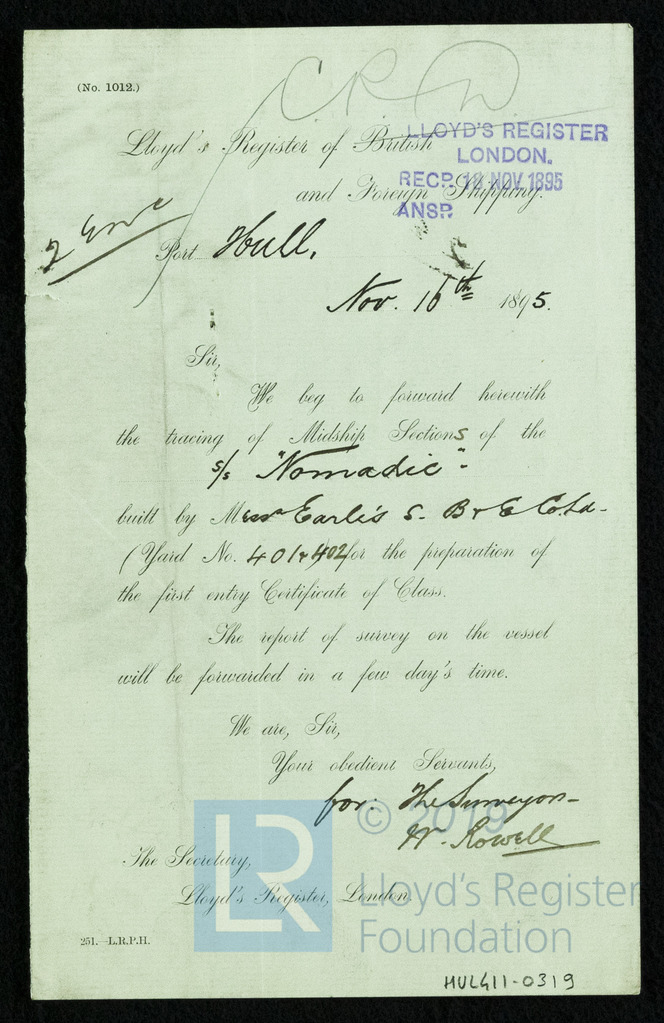 (No. 1012.)
Lloyd's Register of British
and Foreign Shipping.
LLOYD'S REGISTER
LONDON.
RECD. 18 NOV 1895
ANSD.
Port Hull.
Nov. 16th 1895.
Sir,
We beg to forward herewith
the tracing of Midship Sections of the
s/s "Nomadic"
built by Messrs Earle's S. B & E Co Ld
(Yard No. 401 & 402) for the preparation of
the first entry Certificate of Class.
The report of survey on the vessel
will be forwarded in a few day's time.
We are, Sir,
Your obedient Servants,
for: The Surveyors
W. Rowell
The Secretary,
Lloyd's Register, London.
251.—L.R.P.H.
© 2019
LR
Lloyd's Register
Foundation
HUL411-0319